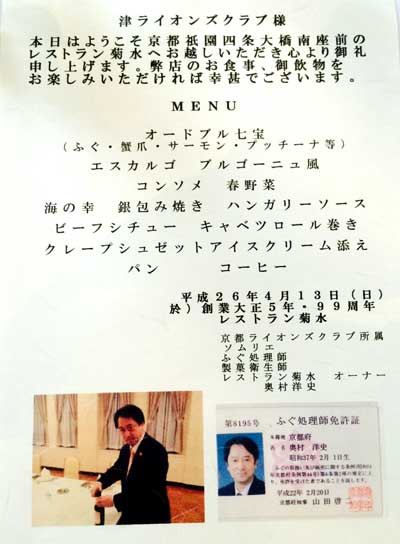 津ライオンズクラブ様
本日はようこそ京都祇園四条大橋南座前の
レストラン菊水へお越しいただき心より御礼
申し上げます。弊店のお食事、御飲物を
お楽しみいただければ幸甚でございます。
MENU
オードブル七宝
(ふぐ・蟹爪・サーモン・プッチーナ等)
エスカルゴ ブルゴーニュ風
コンソメ 春野菜
海の幸 銀包み焼き ハンガリーソース
ビーフシチュー キャベツロール巻き
クレープシュゼットアイスクリーム添え
パン コーヒー
平成26年4月13日(日)
於)創業大正5年・99周年
レストラン菊水
京都ライオンズクラブ所属
ソムリエ
ふぐ処理師
製菓衛生師
レストラン菊水 オーナー
奥村洋史
第8195号 ふぐ処理師免許証
本籍地 京都府
氏名 奥村 洋史
昭和37年2月1日生
平成22年2月20日
京都府知事 山田啓二